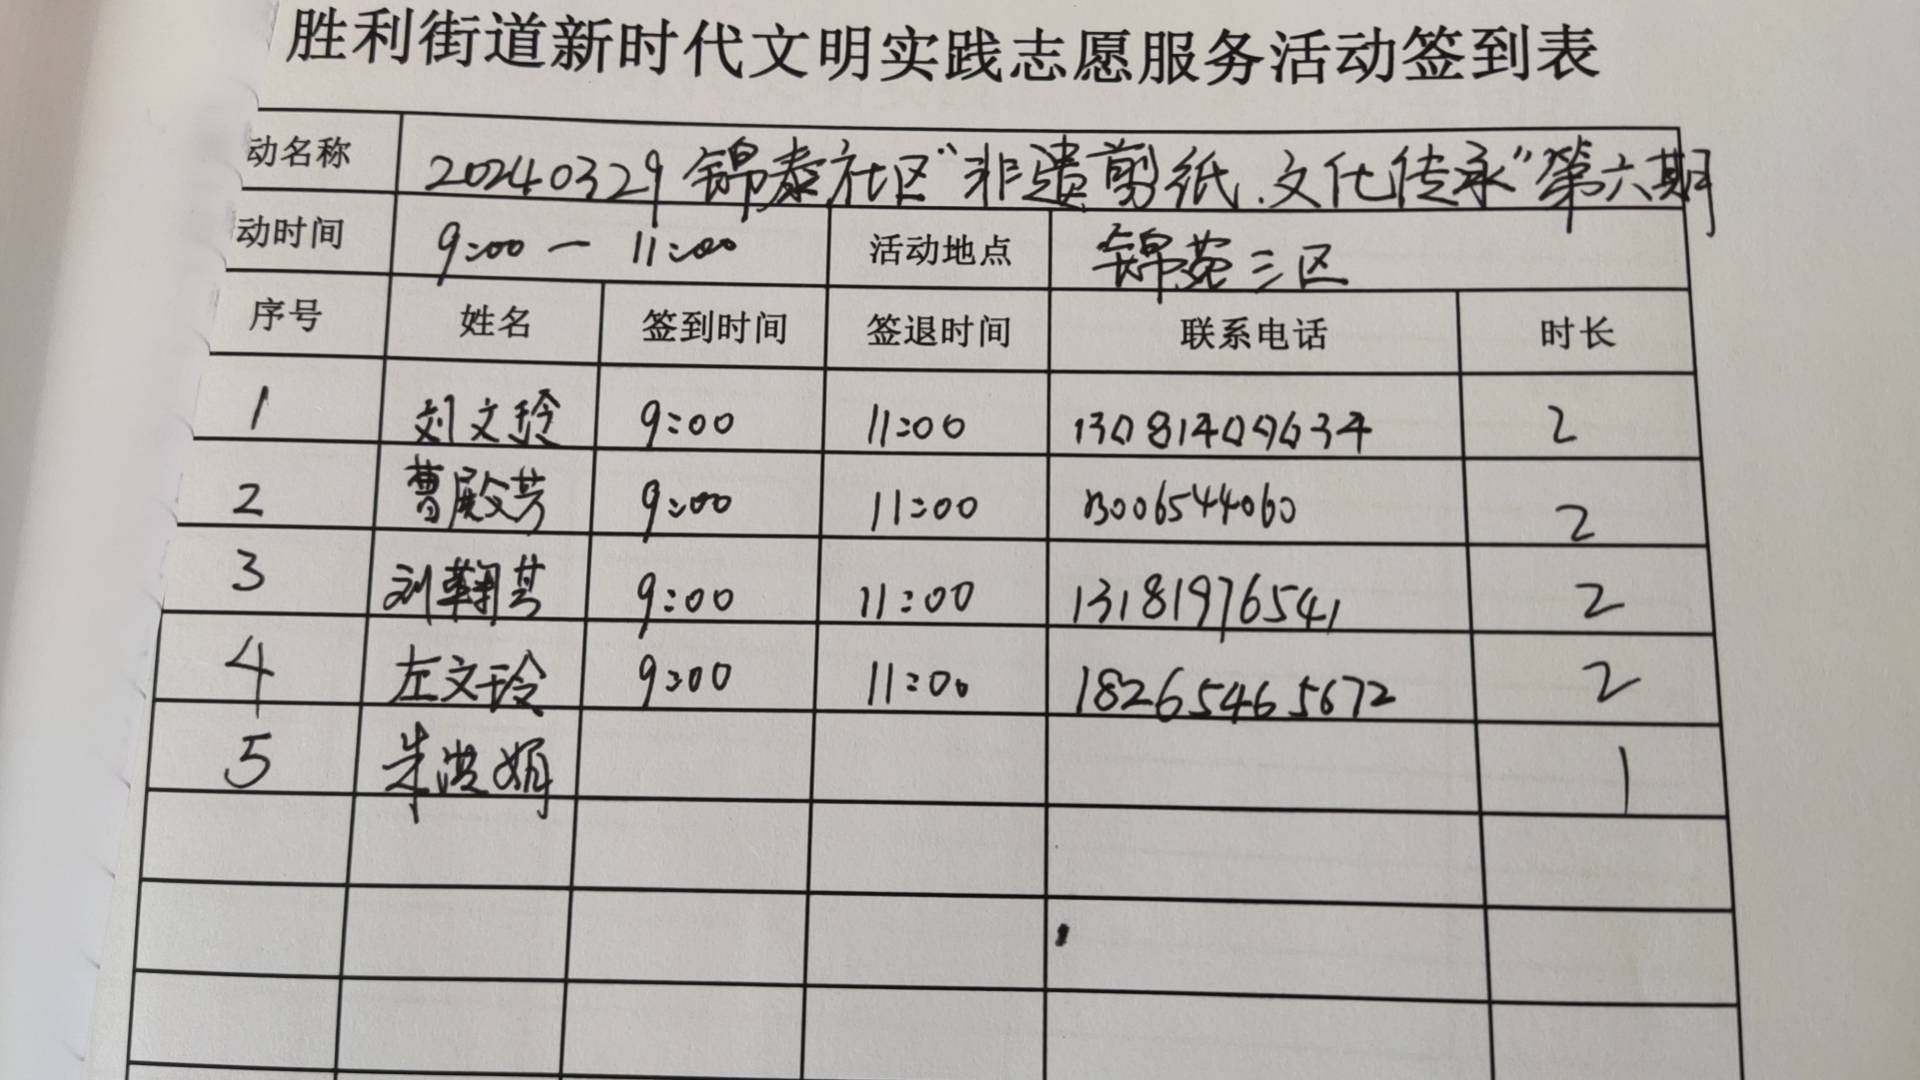 胜利街道新时代文明实践志愿服务活动签到表
动名称 20240329锦泰社区"非遗剪纸.文化传承"第六期
动时间 9:00一11:00 活动地点 锦苑三区
序号 姓名 签到时间 签退时间 联系电话 时长
1 刘文玲 9:00 11:00 2
2 曹殿芳 9:00 11:00 13006544060 2
3 9:00 11:00 13181976541 2
4 左文玲 9:00 11:00 18265465672 2
5 朱洪娟 1